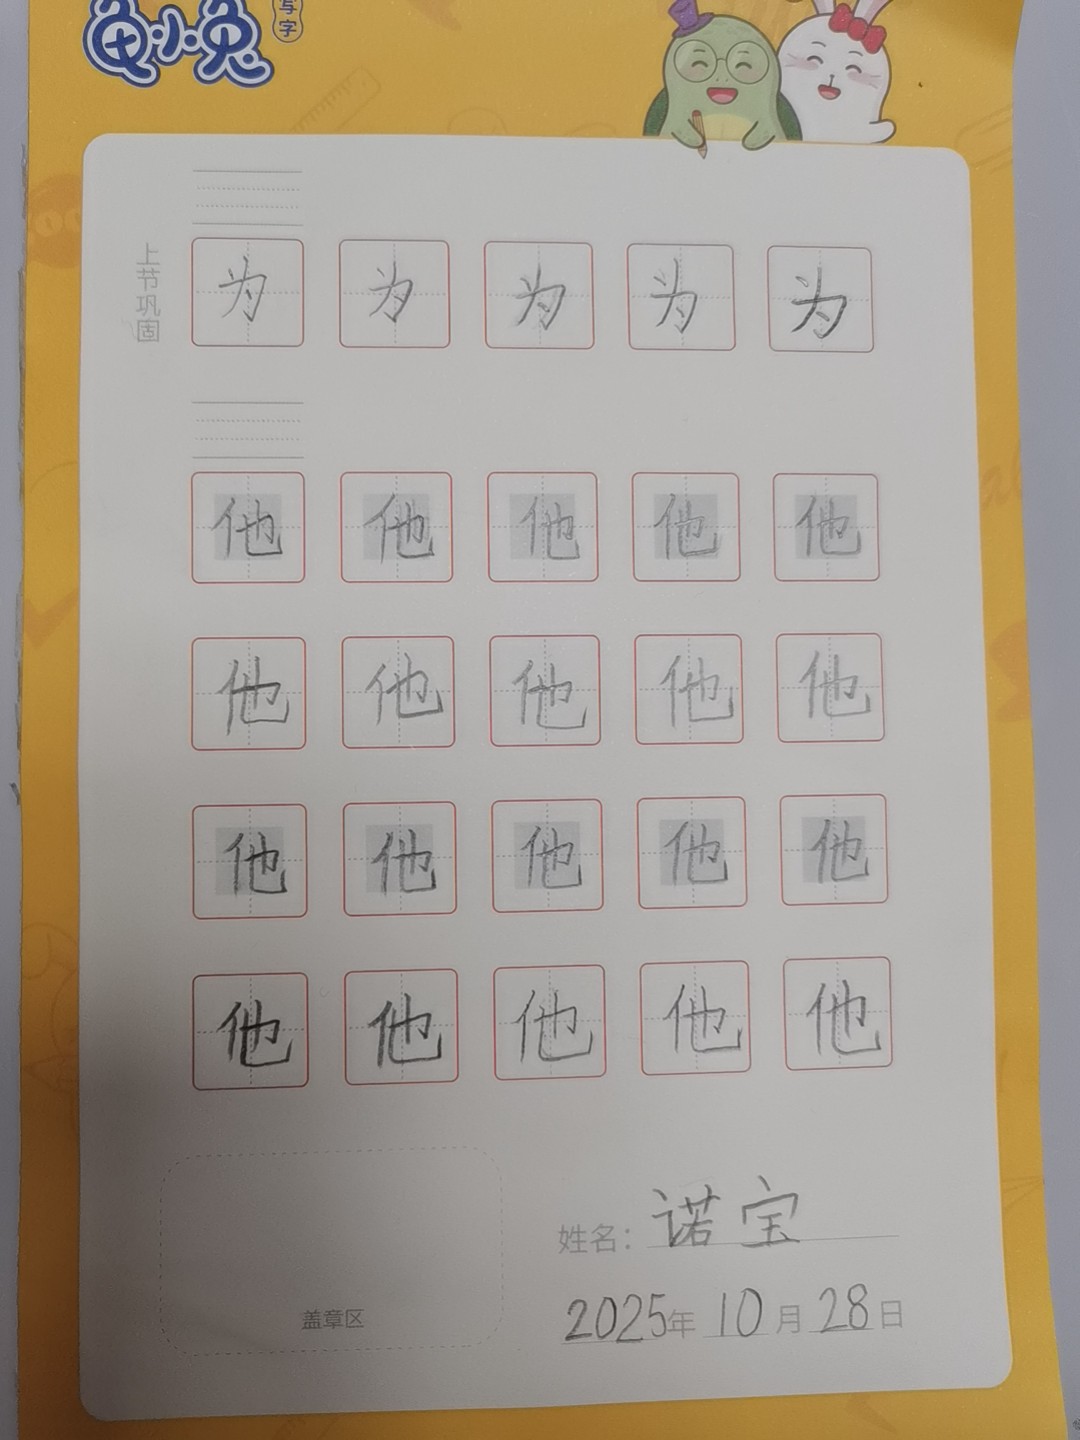 龟小兔
写字
上节巩固
为 为 为 为 为
他 他 他 他 他
他 他 他 他 他
他 他 他 他 他
他 他 他 他 他
姓名：诺宝
盖章区
2025年 10月 28日